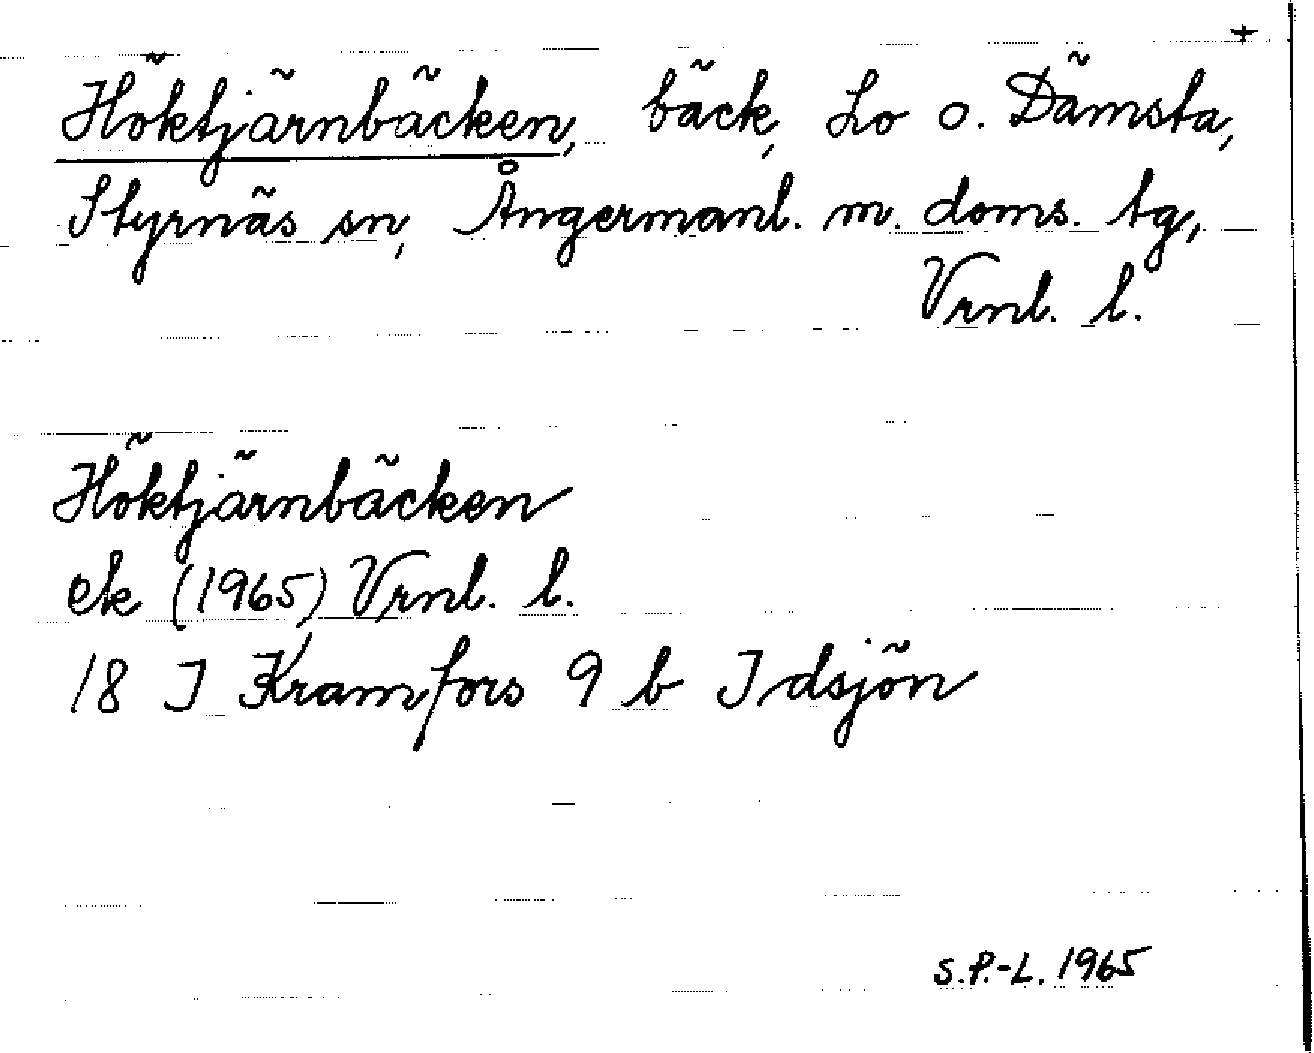 +
Höktjärnbäcken, bäck, Lo o. Dämsta,
Styrnäs sn, Ångermanl. m. doms. tg,
Vrnl. l.
Höktjärnbäcken
ek (1965) Vrnl. l.
18 I Kramfors 9 b Idsjön
S.P.-L. 1965